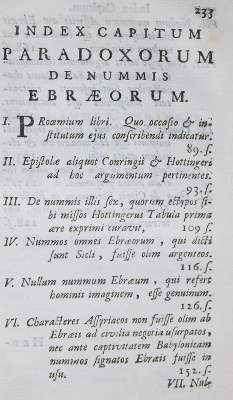 233
INDEX CAPITUM
PARADOXORUM
DE NUMMIS
EBRÆORUM.
I. PRoœmium libri. Quo occasio & in-
stitutum ejus conscribendi indicatur.
89. s.
II. Epistolæ aliquot Conringii & Hottingeri
ad hoc argumentum pertinentes.
93. s.
III. De nummis illis sex, quorum ectypos si-
bi missos Hottingerus Tabula prima
ære exprimi curavit, 109 s.
IV. Nummos omnes Ebræorum, qui dicti
sunt Sicli, fuisse olim argenteos.
116. s.
V. Nullum nummum Ebræum, qui refert
hominis imaginem, esse genuinum.
126. s.
VI. Characteres Assyriacos non fuisse olim ab
Ebræis ad civilia negotia usurpatos,
nec ante captivitatem Babylonicam
nummos signatos Ebræis fuisse in
usu. 152. s.
VII. Nul-